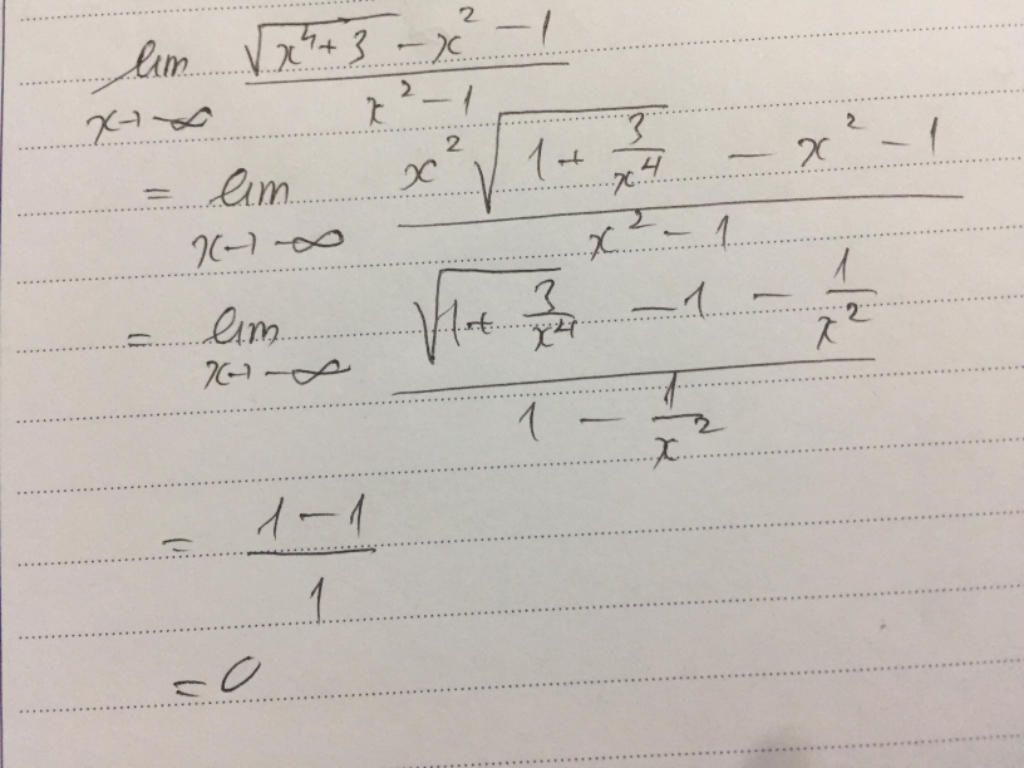 lim (√(x⁴+3) - x² - 1)/(x² - 1)
x→-∞
= lim (x²√(1 + 3/x⁴) - x² - 1)/(x² - 1)
x→-∞
= lim (√(1 + 3/x⁴) - 1 - 1/x²)/(1 - 1/x²)
x→-∞
= (1 - 1)/1
= 0